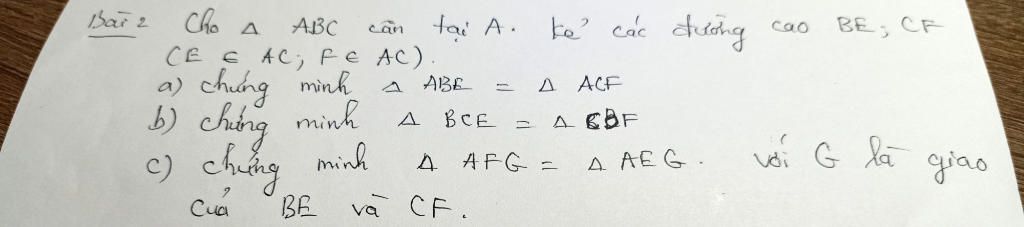 Bài 2 Cho Δ ABC cân tại A. kẻ các đường cao BE; CF
(E ∈ AC; F ∈ AC).
a) chứng minh Δ ABE = Δ ACF
b) chứng minh Δ BCE = Δ CBF
c) chứng minh Δ AFG = Δ AEG. với G là giao
của BE và CF.